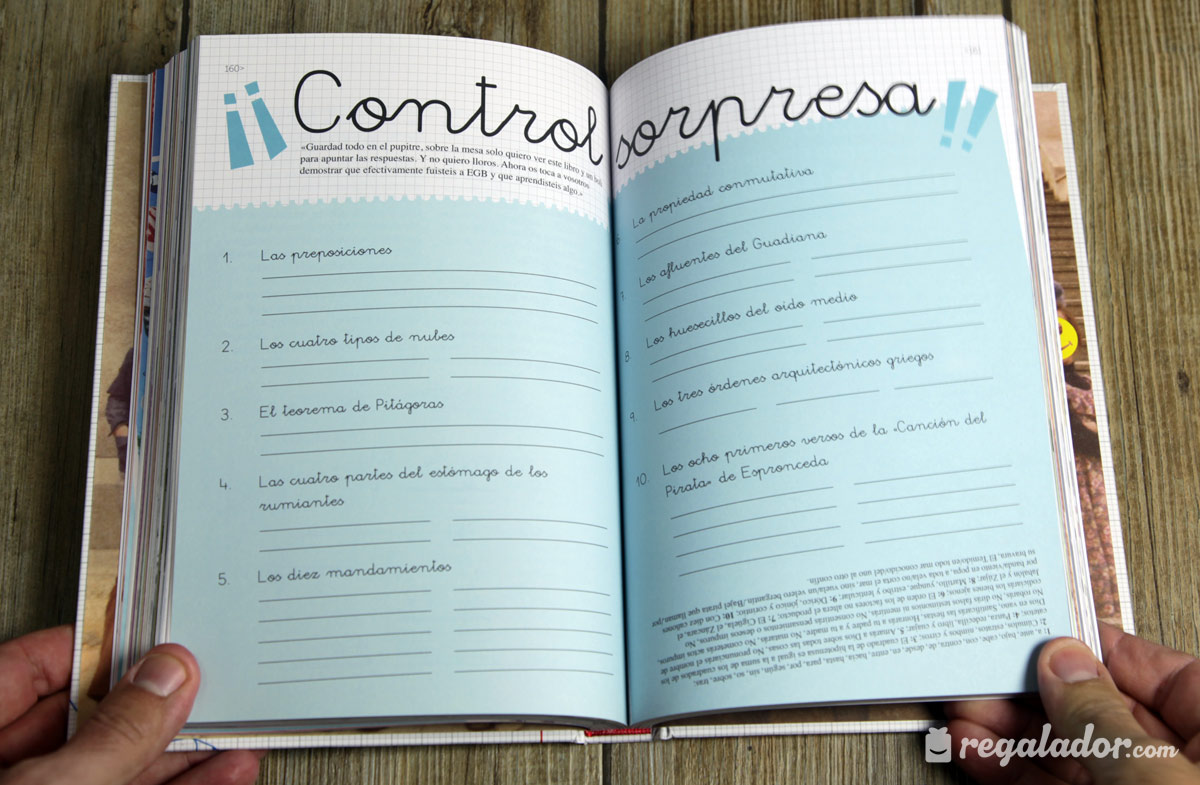 160>
<161
¡¡Control sorpresa!!
«Guardad todo en el pupitre, sobre la mesa solo quiero ver este libro y un boli
para apuntar las respuestas. Y no quiero lloros. Ahora os toca a vosotros
demostrar que efectivamente fuisteis a EGB y que aprendisteis algo.»
1. Las preposiciones
2. Los cuatro tipos de nubes
3. El teorema de Pitágoras
4. Las cuatro partes del estómago de los
rumiantes
5. Los diez mandamientos
La propiedad conmutativa
7. Los afluentes del Guadiana
8. Los huesecillos del oído medio
9. Los tres órdenes arquitectónicos griegos
10. Los ocho primeros versos de la «Canción del
Pirata» de Espronceda
1: a, ante, bajo, cabe, con, contra, de, desde, en, entre, hacia, hasta, para, por, según, sin, so, sobre, tras;
2: Cúmulos, estratos, nimbos y cirros; 3: El cuadrado de la hipotenusa es igual a la suma de los cuadrados de los
catetos; 4: Panza, redecilla, libro y cuajar; 5: Amarás a Dios sobre todas las cosas, No pronunciarás el nombre de
Dios en vano, Santificarás las fiestas, Honrarás a tu padre y a tu madre, No matarás, No cometerás actos impuros,
No robarás, No dirás falso testimonio ni mentirás, No consentirás pensamientos o deseos impuros, No
codiciarás los bienes ajenos; 6: El orden de los factores no altera el producto; 7: El Cigüela, el Záncara, el
Jabalón y el Zújar; 8: Martillo, yunque, estribo y lenticular; 9: Dórico, jónico y corintio; 10: Con diez cañones
por banda/viento en popa, a toda vela/no corta el mar, sino vuela/un velero bergantín./Bajel pirata que llaman/por
su bravura, El Temido/en todo mar conocido/del uno al otro confín.
regalador.com